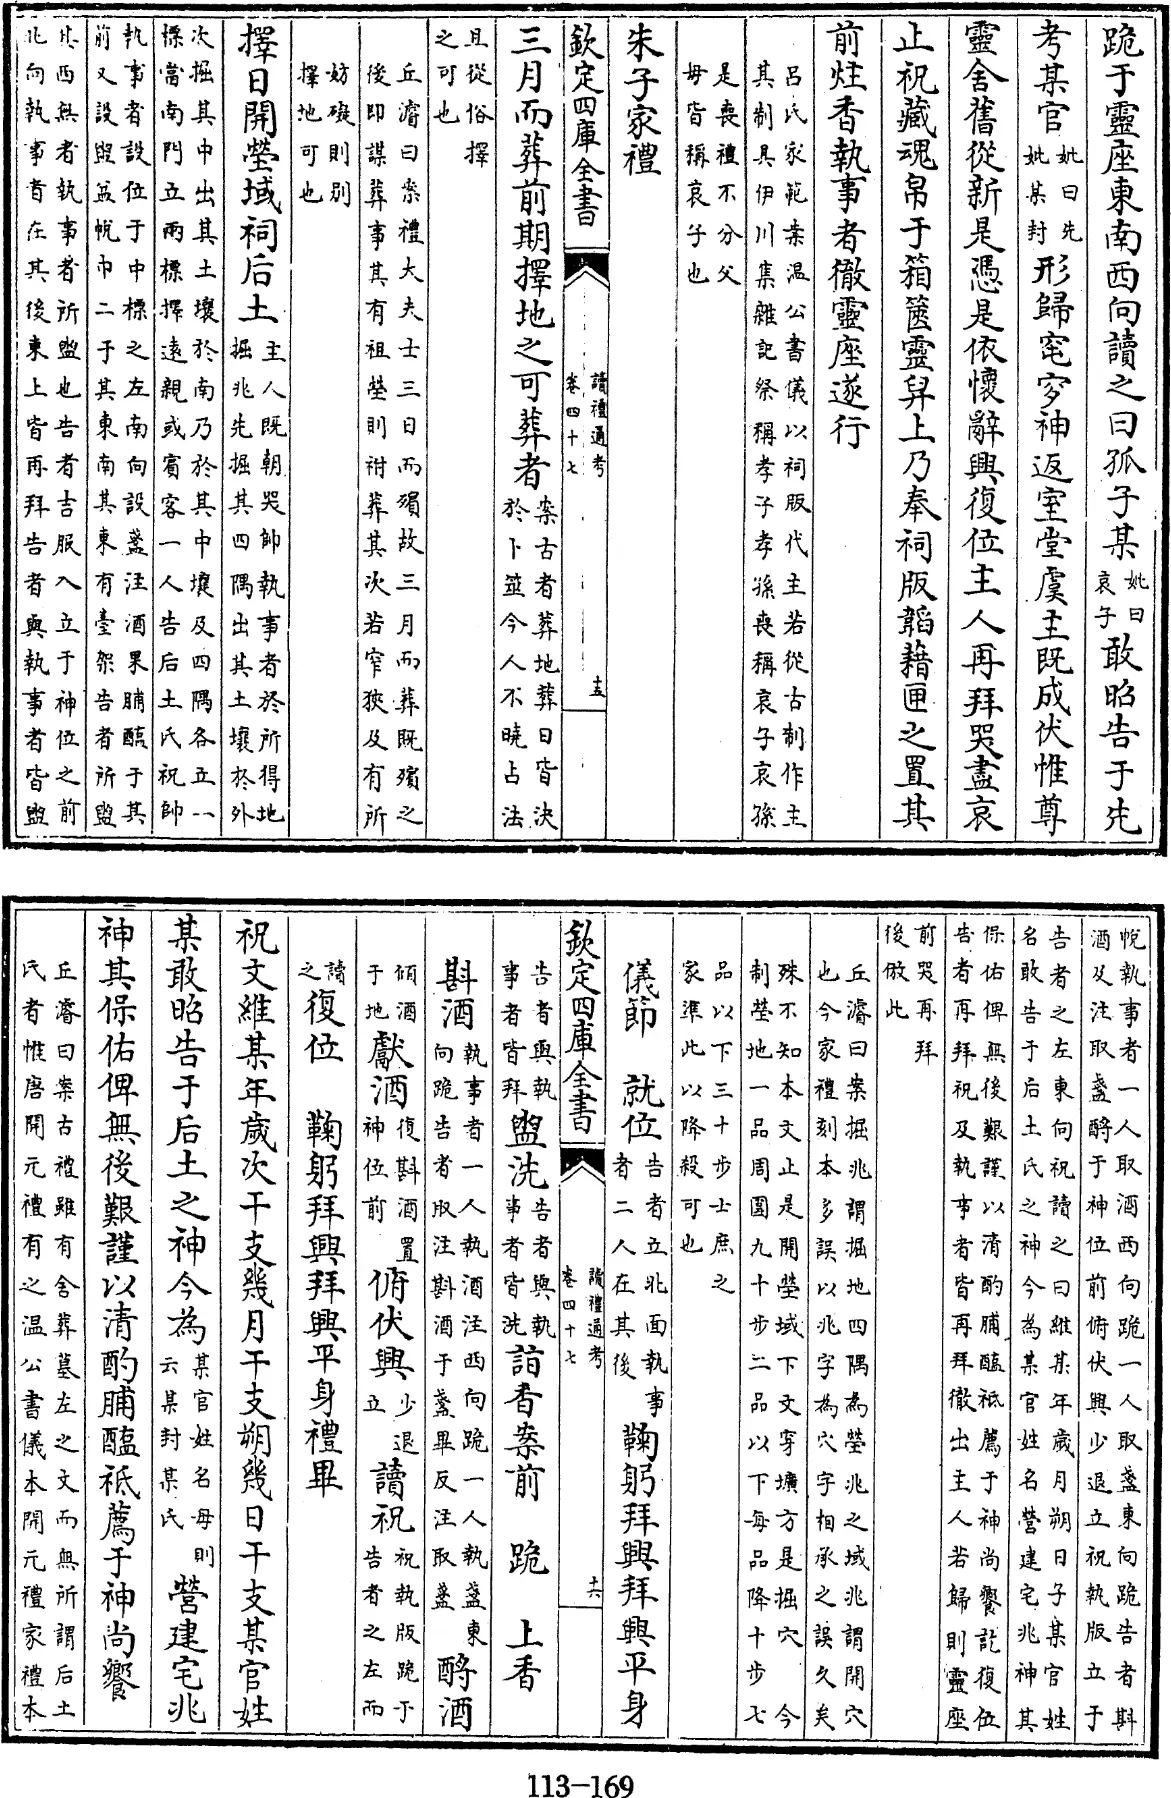 跪于靈座東南西向讀之曰孤子某妣曰哀子敢昭告于先
考某官妣曰先妣某封形歸窀穸神返室堂虞主既成伏惟尊
靈舍舊從新是憑是依懷辭興復位主人再拜哭盡哀
止祝藏魂帛于箱篋靈舁上乃奉祠版韜藉匣之置其
前炷香執事者徹靈座遂行
呂氏家範案温公書儀以祠版代主若從古制作主
其制具伊川集雜記祭稱孝子孝孫喪稱哀子哀孫
是喪禮不分父
毋皆稱哀子也
朱子家禮
欽定四庫全書 讀禮通考 卷四十七 十五
三月而葬前期擇地之可葬者案古者葬地葬日皆決於卜筮今人不曉占法
且從俗擇
之可也
丘濬曰案禮大夫士三日而殯故三月而葬既殯之
後即謀葬事其有祖塋則祔葬其次若窄狹及有所
妨礙則别
擇地可也
擇日開塋域祠后土主人既朝哭帥執事者於所得地掘兆先掘其四隅出其土壤於外
次掘其中出其土壤於南乃於其中壤及四隅各立一
標當南門立兩標擇遠親或賓客一人告后土氏祝帥
執事者設位于中標之左南向設盞注酒果脯醢于其
前又設盥盆帨巾二于其東南其東有臺架告者所盥
其西無者執事者所盥也告者吉服入立于神位之前
北向執事者在其後東上皆再拜告者與執事者皆盥
帨執事者一人取酒西向跪一人取盞東向跪告者斟
酒反注取盞酹于神位前俯伏興少退立祝執版立于
告者之左東向祝讀之曰維某年歲月朔日子某官姓
名敢告于后土氏之神今為某官姓名營建宅兆神其
保佑俾無後艱謹以清酌脯醢祗薦于神尚饗訖復位
告者再拜祝及執事者皆再拜徹出主人若歸則靈座
前哭再拜
後倣此
丘濬曰案掘兆謂掘地四隅為塋兆之域兆謂開穴
也今家禮刻本多誤以兆字為穴字相承之誤久矣
殊不知本文止是開塋域下文穿壙方是掘穴 今
制塋地一品周圍九十步二品以下每品降十步七
品以下三十步士庶之
家準此以降殺可也
儀節 就位告者立北面執事者二人在其後 鞠躬拜興拜興平身
欽定四庫全書 讀禮通考 卷四十七 十六
告者與執事者皆拜盥洗告者與執事者皆洗詣香案前 跪 上香
斟酒執事者一人執酒注西向跪一人執盞東向跪告者取注斟酒于盞畢反注取盞酹酒
傾酒于地獻酒復斟酒置神位前俯伏興少退立讀祝祝執版跪于告者之左而
讀之復位 鞠躬拜興拜興平身禮畢
祝文維某年歲次干支幾月干支朔幾日干支某官姓
某敢昭告于后土之神今為某官姓名毋則云某封某氏營建宅兆
神其保佑俾無後艱謹以清酌脯醢祗薦于神尚饗
丘濬曰案古禮雖有舍葬墓左之文而無所謂后土
氏者惟唐開元禮有之温公書儀本開元禮家禮本
113-169